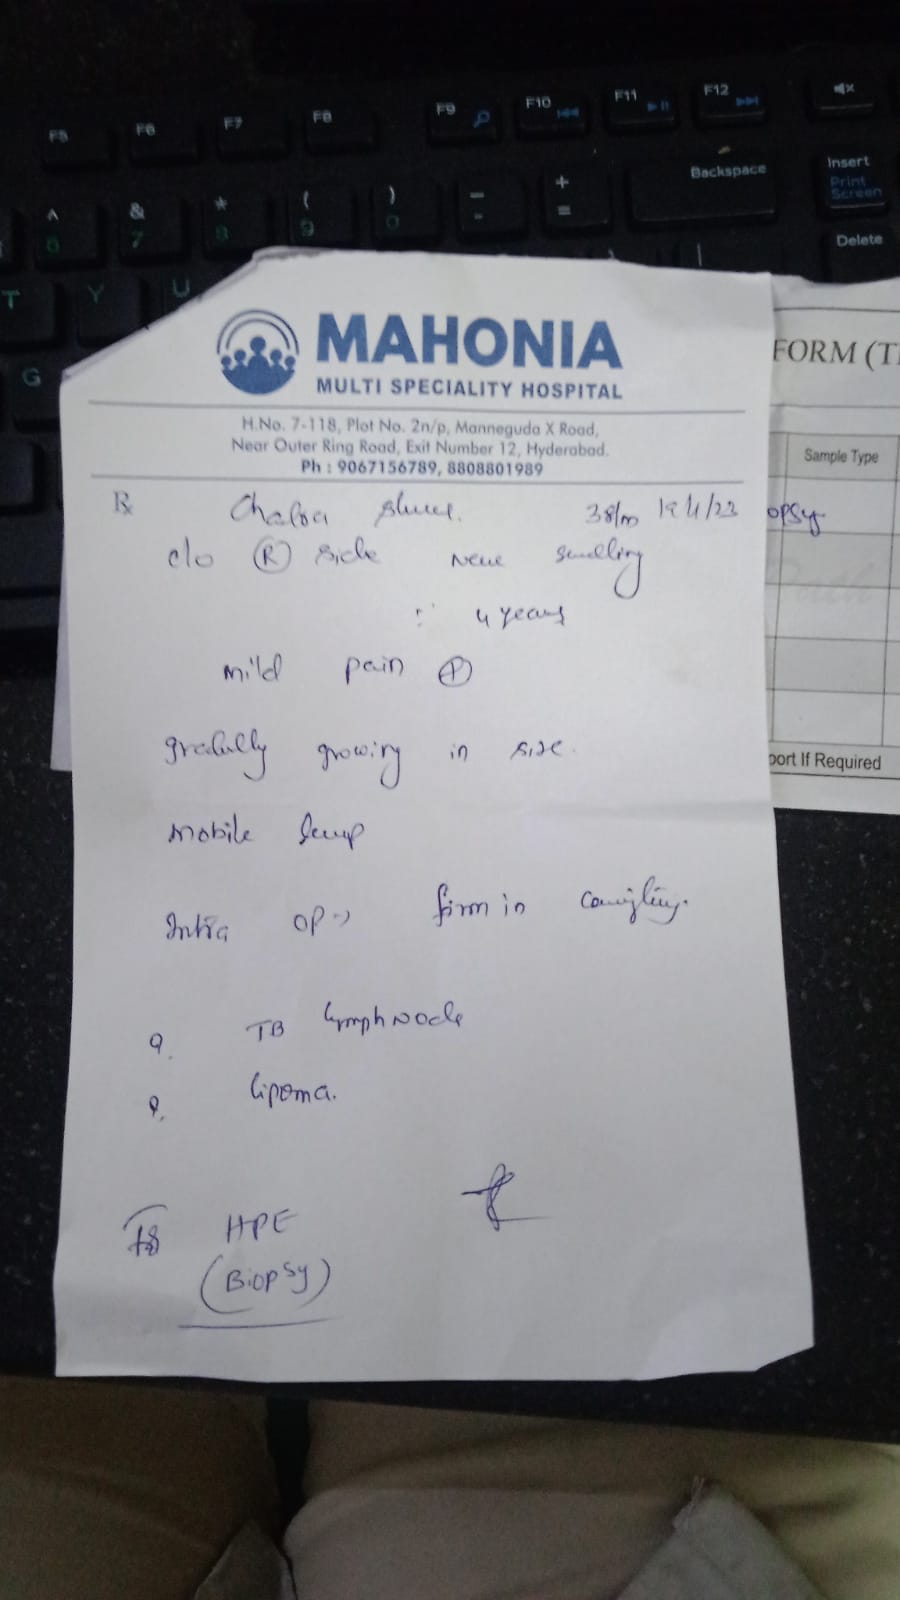 F5 F6 F7 F8 F9 F10 F11 F12
Backspace
Insert
Print
Screen
Delete
^ & * ( ) - +
6 7 8 9 0 - =
T Y U
G
MAHONIA
MULTI SPECIALITY HOSPITAL
H.No. 7-118, Plot No. 2n/p, Manneguda X Road,
Near Outer Ring Road, Exit Number 12, Hyderabad.
Ph : 9067156789, 8808801989
Rx 38/m
c/o (R) side swelling
4 years
mild pain (+)
growing in size.
Mobile lump
Intra op → firm in
? TB lymph node
? lipoma.
HPE
(Biopsy)
FORM (T
Sample Type
opsy
port If Required